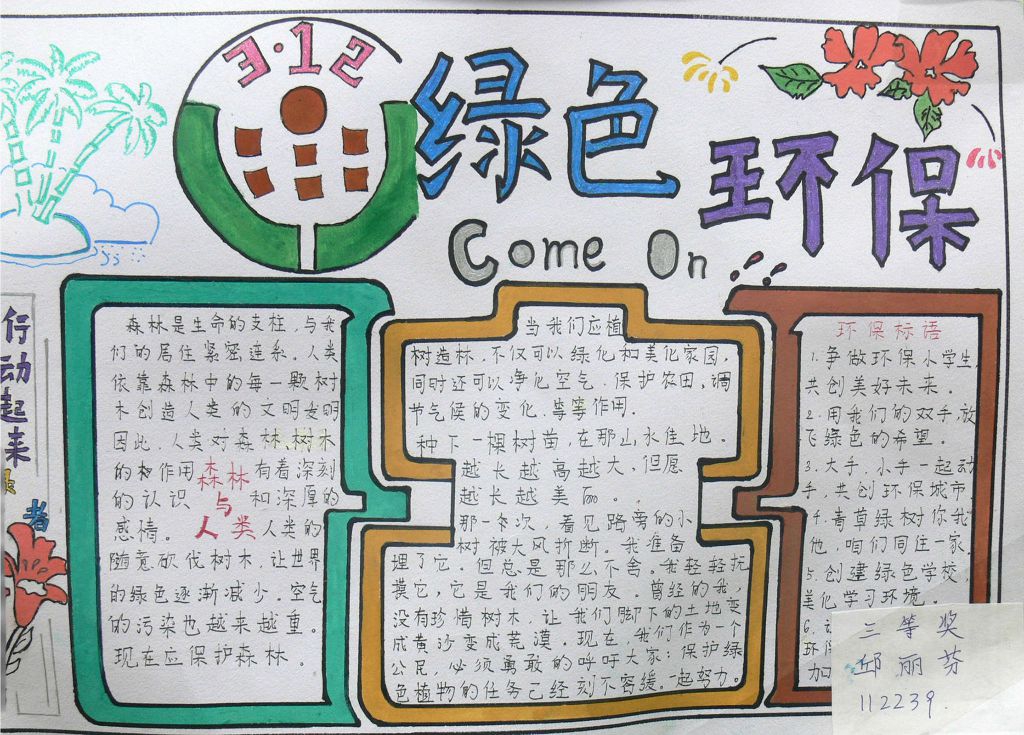 3·12
绿色
环保
Come On
行动起来
者
森林是生命的支柱,与我
们的居住紧密连系。人类
依靠森林中的每一颗树
木创造人类的文明发明
因此,人类对森林、树木
的和作用 有着深刻
的认识 和深厚的
感情。 人类的
随意砍伐树木,让世界
的绿色逐渐减少。空气
的污染也越来越重。
现在应保护森林。
森林
与
人类
当我们应植
树造林,不仅可以绿化和美化家园,
同时还可以净化空气、保护农田,调
节气候的变化、等等作用。
种下一棵树苗,在那山水佳地。
越长越高越大,但愿
越长越美丽。
那一次,看见路旁的小
树被大风折断。我准备
埋了它。但总是那么不舍。我轻轻抚
摸它,它是我们的朋友。曾经的我,
没有珍惜树木,让我们脚下的土地变
成黄沙变成荒漠。现在,我们作为一个
公民,必须勇敢的呼吁大家:保护绿
色植物的任务已经刻不容缓。一起努力。
环保标语
1.争做环保小学生,
共创美好未来。
2.用我们的双手放
飞绿色的希望。
3.大手、小手一起动
手,共创环保城市,
4.青草绿树你我
他,咱们同住一家。
5.创建绿色学校,
美化学习环境。
6.
环保
加
三等奖
邱丽芬
112239.